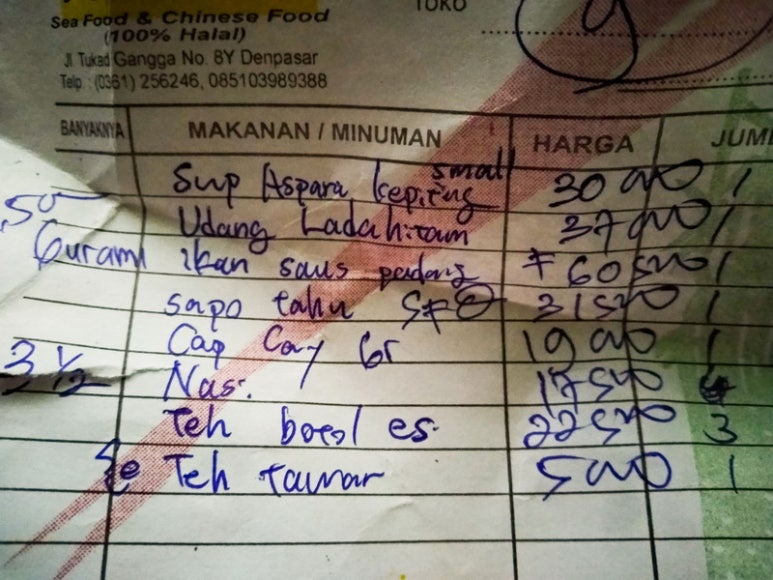 TOKO
Sea Food & Chinese Food
(100% Halal)
Jl. Tukad Gangga No. 8Y Denpasar
Telp. : (0361) 256246, 085103989388
BANYAKNYA MAKANAN / MINUMAN HARGA JUML
small
Sup Aspara kepiting 30 000 1
Udang Lada hitam 37 000 1
Gurami ikan saus padang 60500 1
sapo tahu 31500 1
Cap Cay Gr 19 000 1
3 1/2 Nasi 17500
Teh botol es. 22500 3
Teh tawar 5000 1